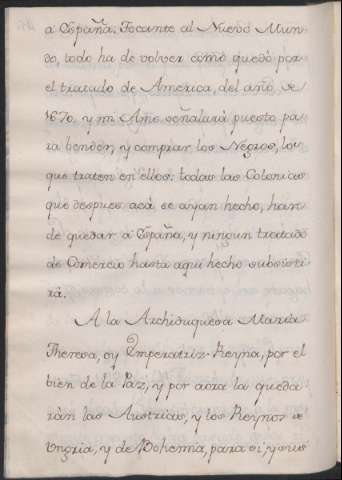 a España. Tocante al Nuevo Mun-
do, todo ha de volver como quedò por
el tratado de America, del año de
1670. y mi Amo señalarà puesto pa
ra bender, y comprar los Negros, los
que traten en ellos: todas las Colonias
que despues acà se ayan hecho, han
de quedar à España, y ningun tratado
de Comercio hasta aqui hecho subsisti
rà.
A la Archiduquesa Maria
Theresa, oy Imperatriz Reyna, por el
bien de la Paz, y por aora la queda
ràn las Austrias, y los Reynos de
Ungria, y de Bohemia, para si, y sus